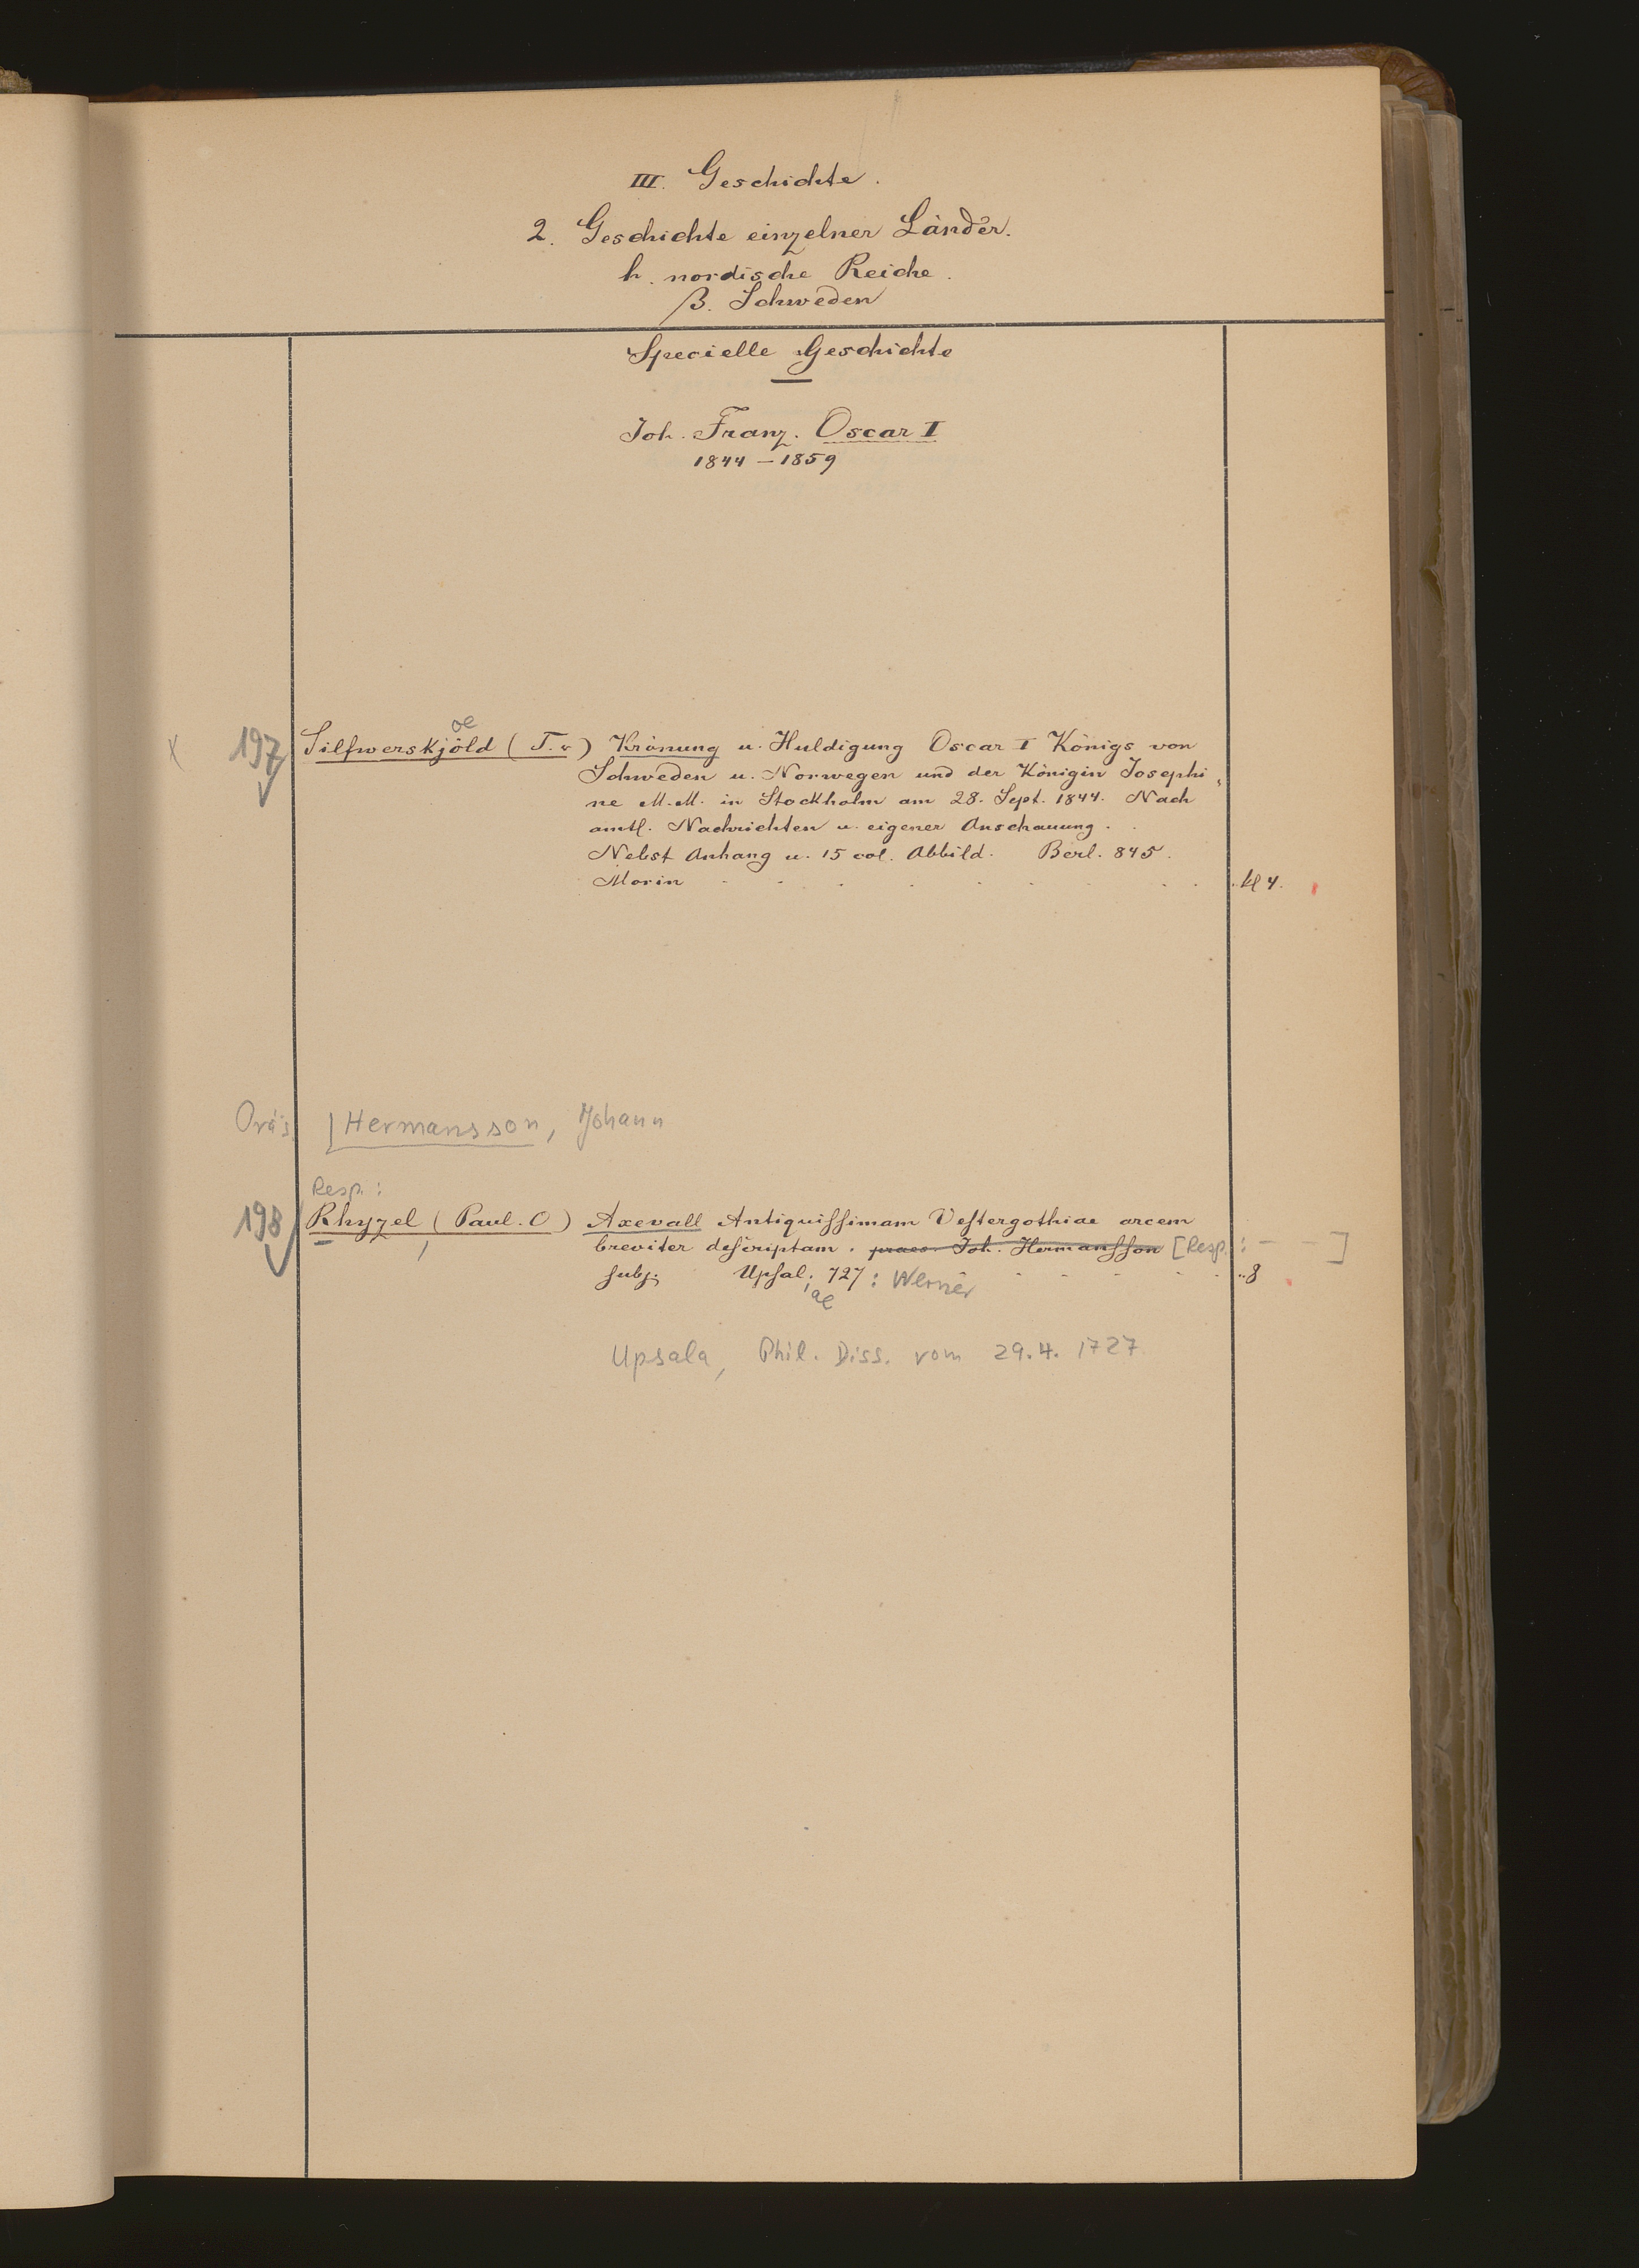 III. Geschichte.
2. Geschichte einzelner Länder.
h. nordische Reiche.
β. Schweden
Specielle Geschichte
Joh. Franz. Oscar I
1844 – 1859
oe
X 197 Silfwerskjöld (T. v) Krönung u. Huldigung Oscar I Königs von
Schweden u. Norwegen und der Königin Josephi
ne M.M. in Stockholm am 28. Sept. 1844. Nach
amtl. Nachrichten u. eigener Anschauung.
Nebst Anhang u. 15 col. Abbild. Berl. 845.
Morin kl 4.
Präs. [Hermansson, Johann
Resp.:
198 Rhyzel (Paul. O) Axevall Antiquiſſimam Veſtergothiae arcem
breviter deſcriptam. praes. Joh. Hermanſſon [Resp.: – – ]
subj. Upſal. 727 : Werner 8
ae
Upsala, Phil. Diss. vom 29.4. 1727